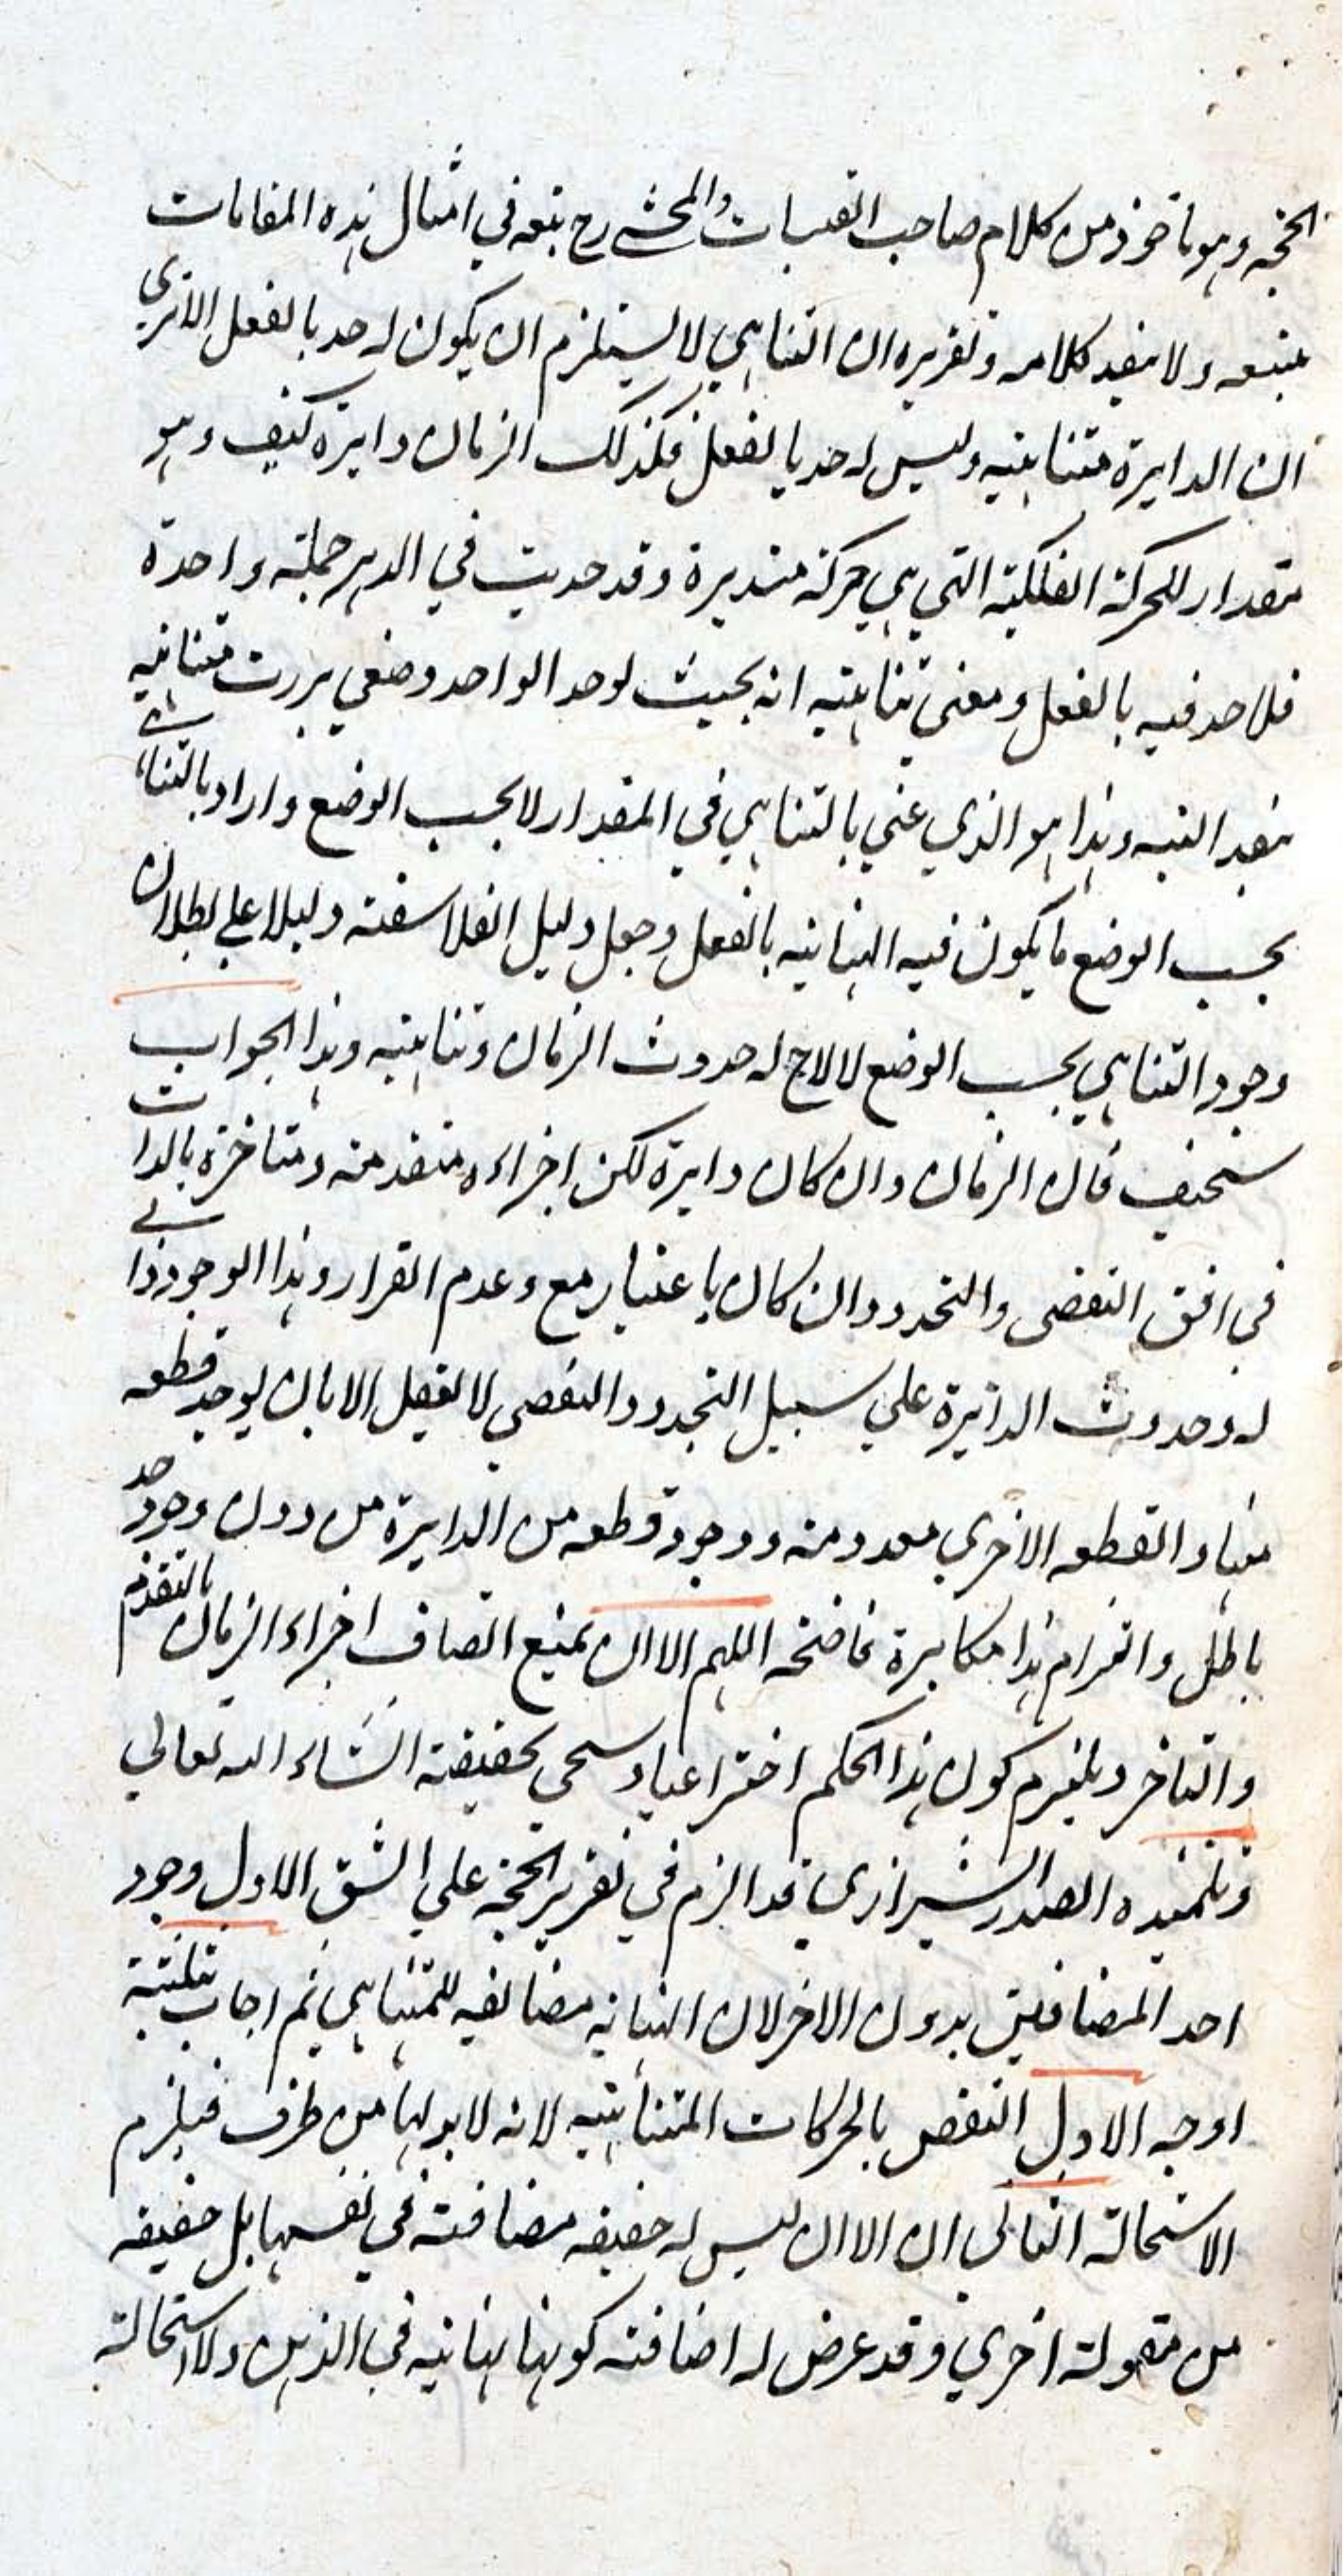 الحجة وهو ماخوذ من كلام صاحب القبسات والمحشے رح تبعه في امثال هذه المقامات
منبعه ولا يفيد كلامه وتقريره ان التناهي لا يستلزم ان يكون له حد بالفعل الا تري
ان الدايرة متناهية وليس له حد بالفعل فكذلك الزمان دايرة كيف وهو
مقدار للحركة الفلكية التي هي حركة مستديرة وقد حدثت في الدهر جملة واحدة
فلا حد فيه بالفعل ومعنى تناهيته انه بحيث لو حد الواحد وضعي متناهية
بقدر النسبة وهذا هو الذي عني بالتناهي في المقدار لا بحسب الوضع واراد بالتناهے
بحسب الوضع ما يكون فيه النهاية بالفعل وجعل دليل الفلاسفة دليلا علي بطلان
وجود التناهي بحسب الوضع لا لاجله حدوث الزمان وتناهيته وهذا الجواب
سخيف فان الزمان وان كان دايرة لكن اجزاءه متقدمة ومتاخرة بالذات
في افق التقضى والتجدد وان كان باعتبار مع وعدم القرار وهذا الوجود ذاتے
له وحدوث الدائرة علي سبيل التجدد والتقضي لا يعقل الا بان يوجد قطعه
منها والقطعه الاخري معدومة ووجود قطعه من الدايرة من دون وجود حد
باطل والتزام هذا مكابرة فاضحة اللهم الا ان يمنع اتصاف اجزاء الزمان بالتقدم
والتاخر ويلتزم كون هذا الحكم اختراعيا وسيجي تحقيقه انشاء الله تعالي
وتلميذه الصدر الشيرازى قد الزم في تقرير الحجة علي الشق الاول وجود
احد المضافين بدون الاخر لان النهاية مضائفة للمتناهي ثم اجاب بثلثة
اوجه الاول النقض بالحركات المتناهية لانه لا بد لها من طرف فيلزم
الاستحالة الثاني ان الآن ليس له حقيقه مضافة في نفسها بل حقيقه
من مقولة اخري وقد عرض له اضافة كونها نهاية في الذهن ولا استحالة